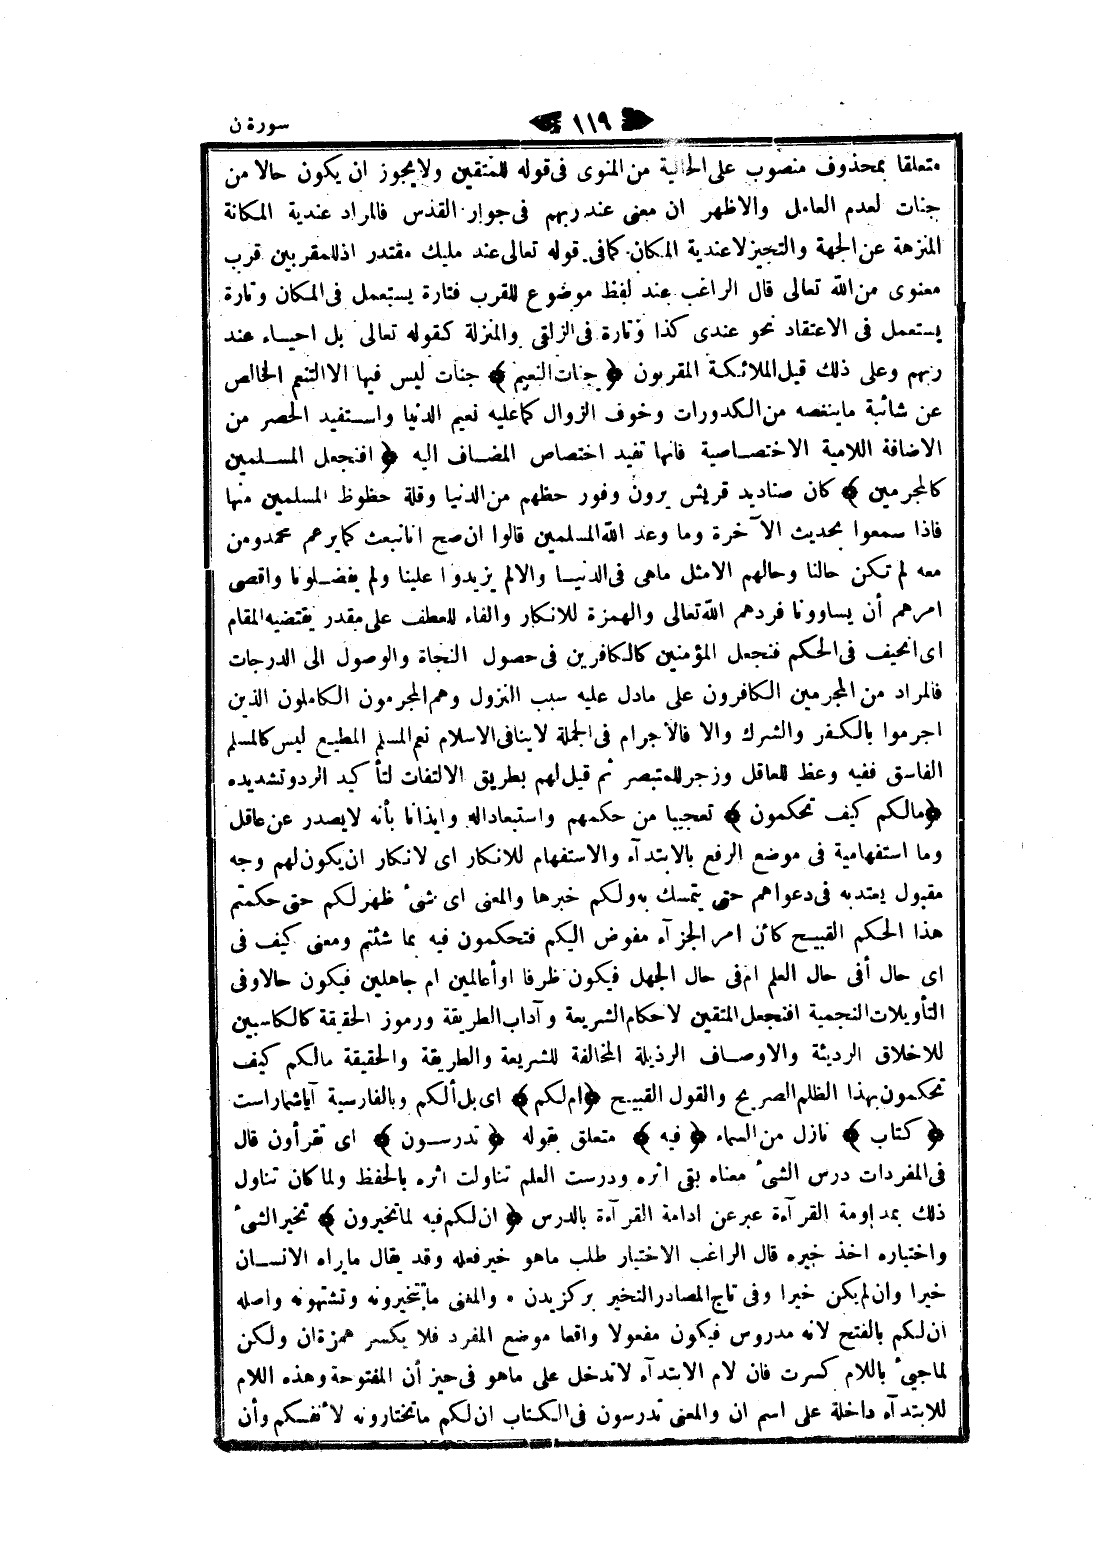 سورة ن
١١٩
متعلقا بمحذوف منصوب على الحالية من المنوى فى قوله للمتقين ولا يجوز ان يكون حالا من
جنات لعدم العامل والاظهر ان معنى عند ربهم فى جوار القدس فالمراد عندية المكانة
المنزهة عن الجهة والتحيز لا عندية المكان كما فى قوله تعالى عند مليك مقتدر اذ للمقربين قرب
معنوى من الله تعالى قال الراغب عند لفظ موضوع للقرب فتارة يستعمل فى المكان وتارة
يستعمل فى الاعتقاد نحو عندى كذا وتارة فى الزلفى والمنزلة كقوله تعالى بل احياء عند
ربهم وعلى ذلك قيل الملائكة المقربون ﴿ جنات النعيم ﴾ جنات ليس فيها الا التنعم الخالص
عن شائبة ما ينغصه من الكدورات وخوف الزوال كما عليه نعيم الدنيا واستفيد الحصر من
الاضافة اللامية الاختصاصية فانها تفيد اختصاص المضاف اليه ﴿ افنجعل المسلمين
كالمجرمين ﴾ كان صناديد قريش يرون وفور حظهم من الدنيا وقلة حظوظ المسلمين منها
فاذا سمعوا بحديث الآخرة وما وعد الله المسلمين قالوا ان صح انا نبعث كما يزعم محمد ومن
معه لم تكن حالنا وحالهم الا مثل ماهى فى الدنيا والا لم يزيدوا علينا ولم يفضلونا واقصى
امرهم أن يساوونا فردهم الله تعالى والهمزة للانكار والفاء للعطف على مقدر يقتضيه المقام
اى انحيف فى الحكم فنجعل المؤمنين كالكافرين فى حصول النجاة والوصول الى الدرجات
فالمراد من المجرمين الكافرون على مادل عليه سبب النزول وهم المجرمون الكاملون الذين
اجرموا بالكفر والشرك والا فالأجرام فى الجملة لا ينافى الاسلام نعم المسلم المطيع ليس كالمسلم
الفاسق ففيه وعظ للعاقل وزجر للمتبصر ثم قيل لهم بطريق الالتفات لتأكيد الرد وتشديده
﴿ مالكم كيف تحكمون ﴾ تعجيبا من حكمهم واستبعادا له وايذانا بأنه لا يصدر عن عاقل
وما استفهامية فى موضع الرفع بالابتدآء والاستفهام للانكار اى لانكار ان يكون لهم وجه
مقبول يعتد به فى دعواهم حتى يتمسك به ولكم خبرها والمعنى اى شئ ظهر لكم حتى حكمتم
هذا الحكم القبيح كأن امر الجزآء مفوض اليكم فتحكمون فيه بما شئتم ومعنى كيف فى
اى حال أفى حال العلم ام فى حال الجهل فيكون ظرفا او أعالمين ام جاهلين فيكون حالا وفى
التأويلات النجمية افنجعل المتقين لاحكام الشريعة وآداب الطريقة ورموز الحقيقة كالكاسبين
للاخلاق الرديئة والاوصاف الرذيلة المخالفة للشريعة والطريقة والحقيقة مالكم كيف
تحكمون بهذا الظلم الصريح والقول القبيح ﴿ ام لكم ﴾ اى بل ألكم وبالفارسية آيا شماراست
﴿ كتاب ﴾ نازل من السماء ﴿ فيه ﴾ متعلق بقوله ﴿ تدرسون ﴾ اى تقرأون قال
فى المفردات درس الشئ معناه بقى اثره ودرست العلم تناولت اثره بالحفظ ولما كان تناول
ذلك بمداومة القرآءة عبر عن ادامة القرآءة بالدرس ﴿ ان لكم فيه لما تخيرون ﴾ تخير الشئ
واختياره اخذ خيره قال الراغب الاختيار طلب ماهو خير فعله وقد يقال ما يراه الانسان
خيرا وان لم يكن خيرا وفى تاج المصادر التخير بركزيدن . والمعنى ما تتخيرونه وتشتهونه واصله
ان لكم بالفتح لانه مدروس فيكون مفعولا واقعا موضع المفرد فلا يكسر همزة ان ولكن
لما جيئ باللام كسرت فان لام الابتدآء لا تدخل على ماهو فى حيز أن المفتوحة وهذه اللام
للابتدآء داخلة على اسم ان والمعنى تدرسون فى الكتاب ان لكم ما تختارونه لأنفسكم وأن